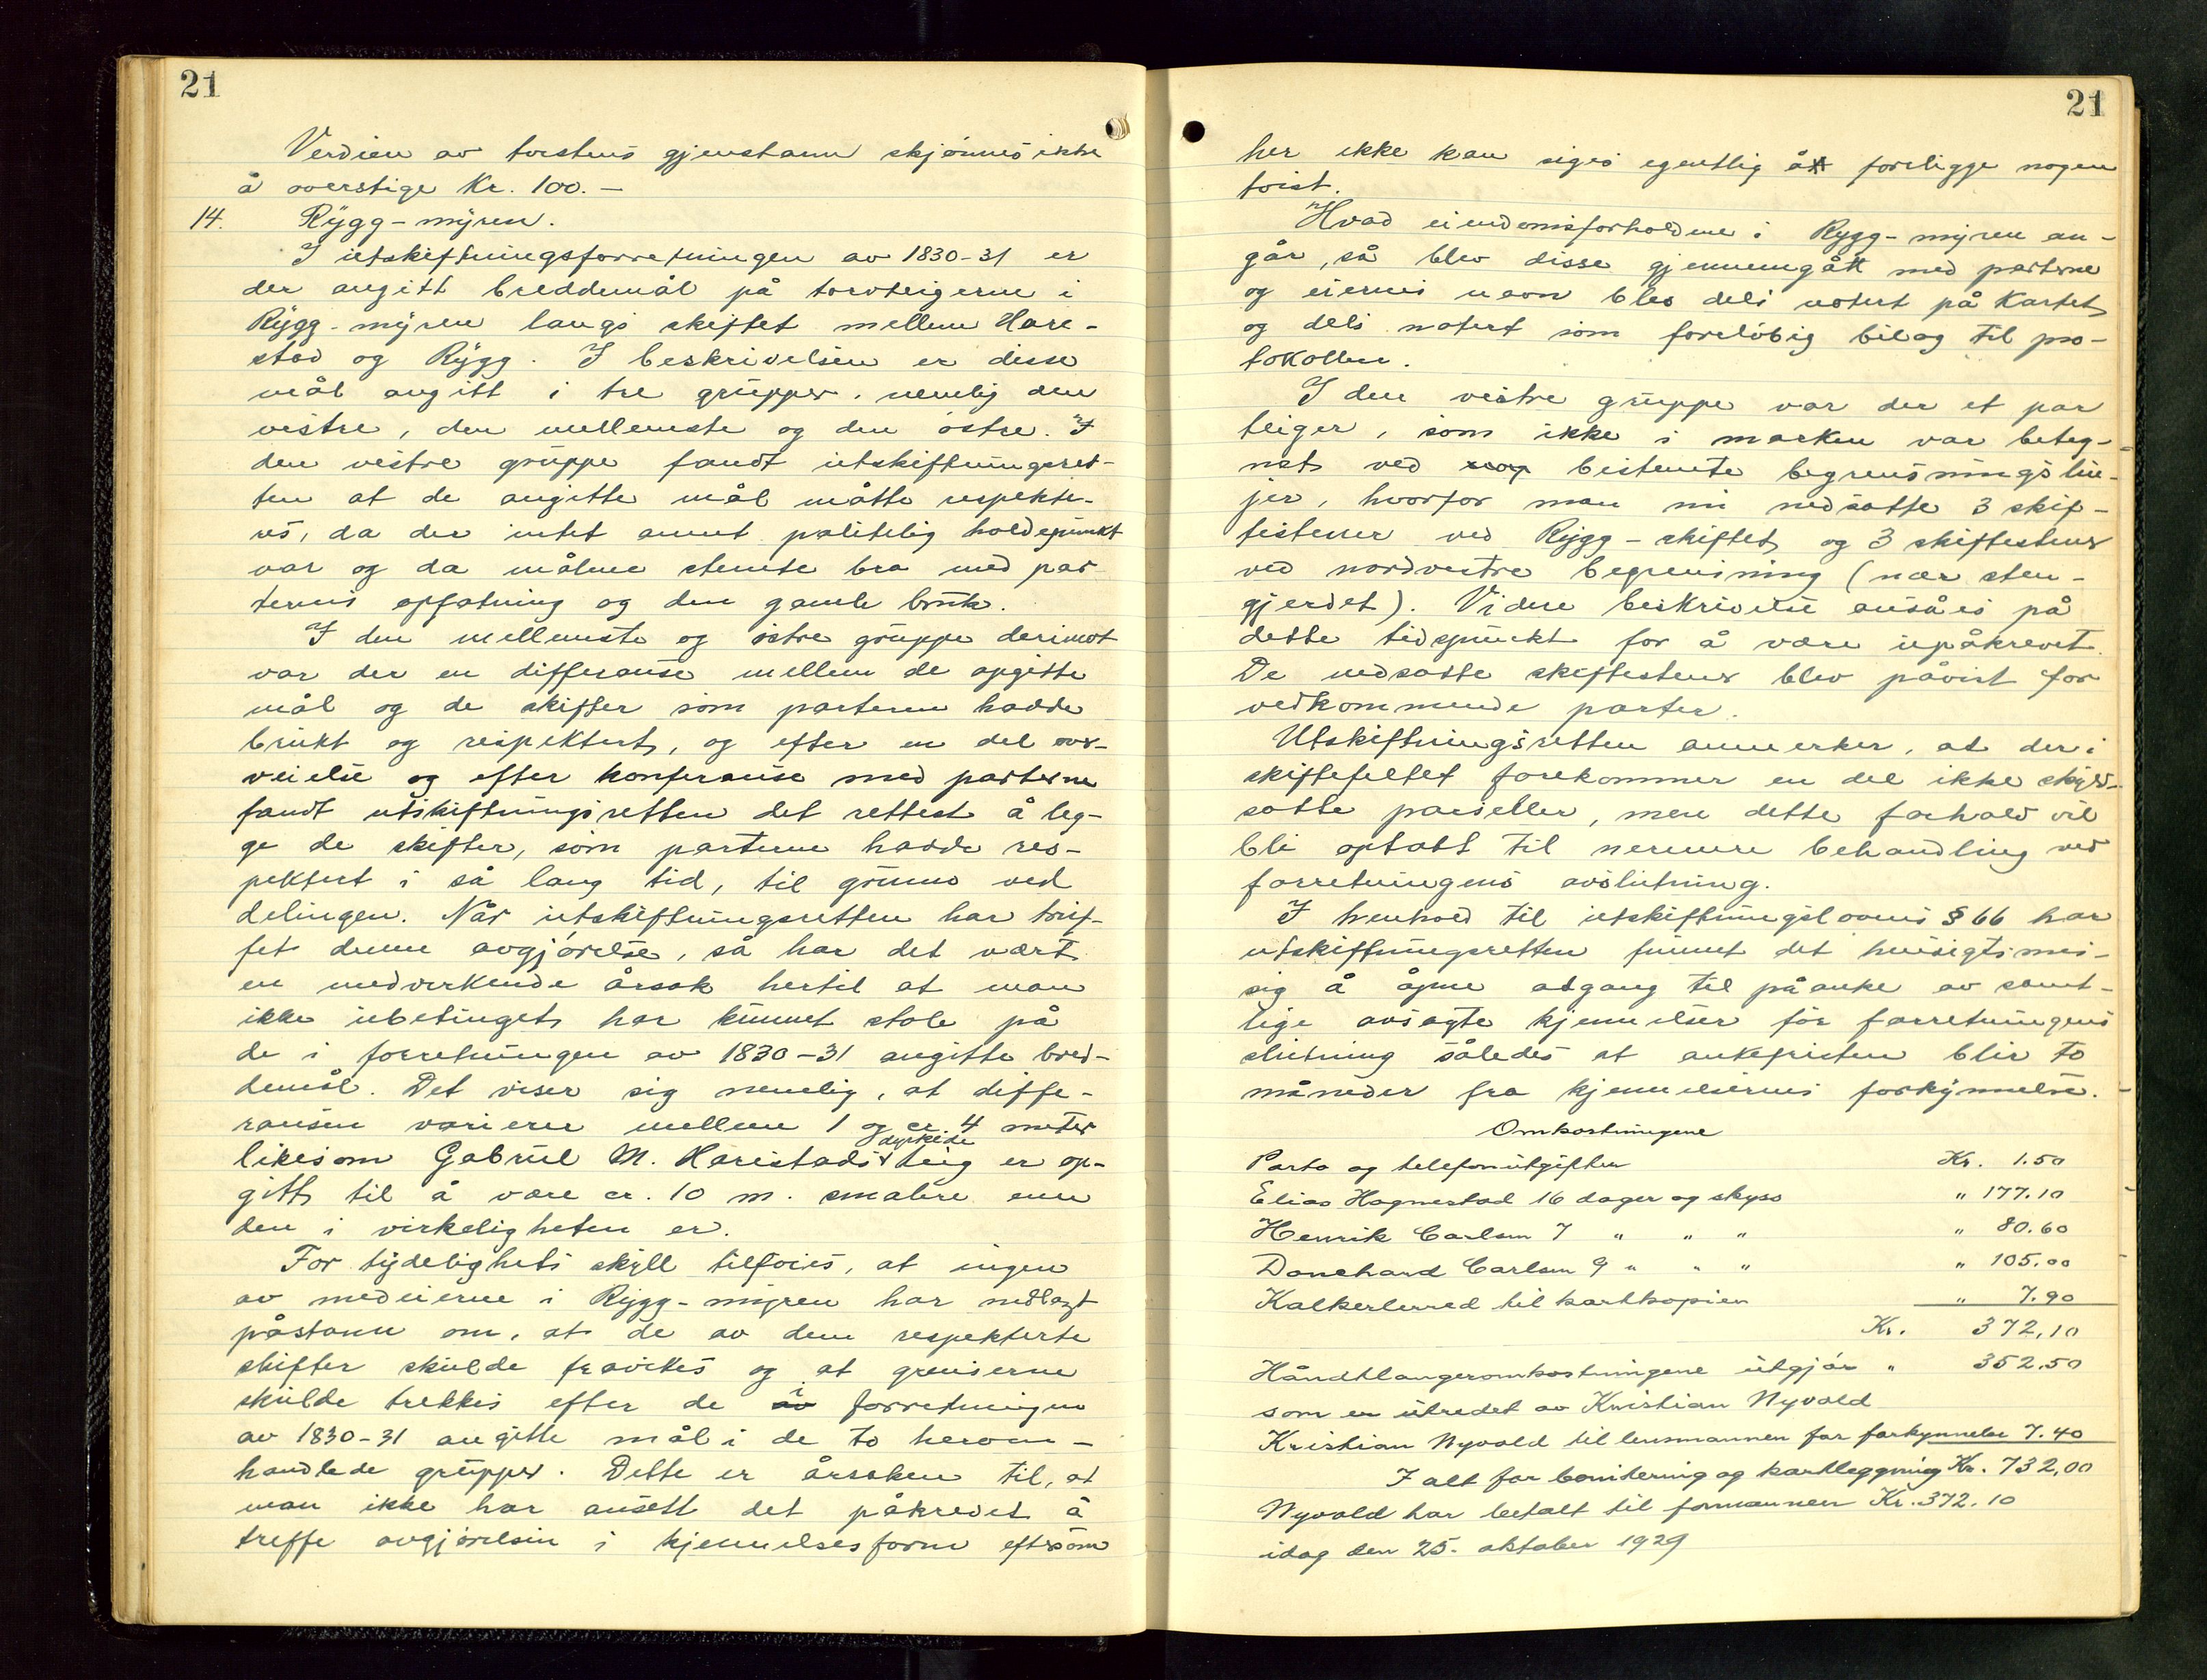 21
Verdien av tvistens gjenstann skjönnes ikke
å overstige Kr. 100.—
14. Rygg-myren.
I utskiftningsforretningen av 1830-31 er
der angitt breddemål på torvteigerne i
Rygg-myren langs skiftet mellem Hare-
stad og Rygg. I beskrivelsen er disse
mål angitt i tre grupper, nemlig den
vestre, den mellemste og den östre. I
den vestre gruppe fandt utskiftningsret-
ten at de angitte mål måtte respekte-
res, da der intet annet pålitelig holdepunkt
var og da målene stemte bra med par-
ternes opfatning og den gamle bruk.
I den mellemste og östre gruppe derimot
var der en differanse mellem de opgitte
mål og de skifter som parterne hadde
brukt og respektert, og efter en del over-
veielse og efter konferanse med parterne
fandt utskiftningsretten det rettest å leg-
ge de skifter, som parterne hadde res-
pektert i så lang tid, til grunn ved
delingen. Når utskiftningsretten har truf-
fet denne avgjörelse, så har det vært
en medvirkende årsak hertil at man
ikke ubetinget har kunnet stole på
de i forretningen av 1830-31 angitte bred-
demål. Det viser sig nemlig, at diffe-
ransen varierer mellem 1 og cr. 4 meter
likesom Gabriel M. Harestads dyrkede teig er op-
gitt til å være cr. 10 m. smalere enn
den i virkeligheten er.
For tydelighets skyll tilföies, at ingen
av medeierne i Rygg-myren har nedlagt
påstann om, at de av dem respekterte
skifter skulde fravikes og at grenserne
skulde trekkes efter de av i forretningen
av 1830-31 angitte mål i de to herom-
handlede grupper. Dette er årsaken til, at
man ikke har ansett det påkrevet å
treffe avgjörelsen i kjennelsesform eftersom
21
her ikke kan siges egentlig å foreligge nogen
tvist.
Hvad eiendomsforholdene i Rygg-myren an-
går, så blev disse gjennemgått med parterne
og eiernes navn blev dels notert på kartet
og dels notert som forelöbig bilag til pro-
tokollen.
I den vestre gruppe var der et par
teiger, som ikke i marken var beteg-
net ved bestemte begrensningslin-
jer, hvorfor man nu nedsatte 3 skif-
testener ved Rygg-skiftet og 3 skiftestener
ved nordvestre begrensning (nær sten-
gjerdet). Videre beskrivelse ansåes på
dette tidspunkt for å være upåkrevet.
De nedsatte skiftestener blev påvist for
vedkommende parter.
Utskiftningsretten anmerker, at der i
skiftefeltet forekommer en del ikke skyld-
satte parseller, men dette forhold vil
bli optatt til nermere behandling ved
forretningens avslutning.
I henhold til utskiftningslovens § 66 har
utskiftningsretten funnet det hensigtsmes-
sig å åpne adgang til påanke av samt-
lige avsagte kjennelser för forretningens
slutning således at ankefristen blir to
måneder fra kjennelsernes forkynnelse.—
Omkostningene
Porto og telefonutgifter Kr. 1.50
Elias Hognestad 16 dager og skyss " 177.10
Henrik Carlsen 7 " " " " 80.60
Danchard Carlsen 9 " " " " 105.00
Kalkerlerred til kartkopien " 7.90
Kr. 372,10
Håndtlangeromkostningene utgjör " 352.50
som er utredet av Kristian Nyvold
Kristian Nyvold til lensmannen for forkynnelse 7.40
I alt for bonitering og kartleggning Kr. 732,00
Nyvold har betalt til formannen Kr. 372.10
idag den 25. oktober 1929